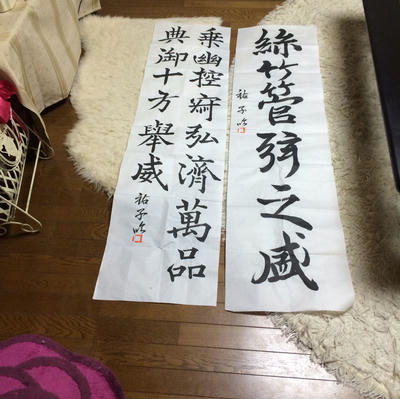 絲竹管弦之盛
祐子
乗幽控寂弘濟萬品
典御十方舉威
祐子